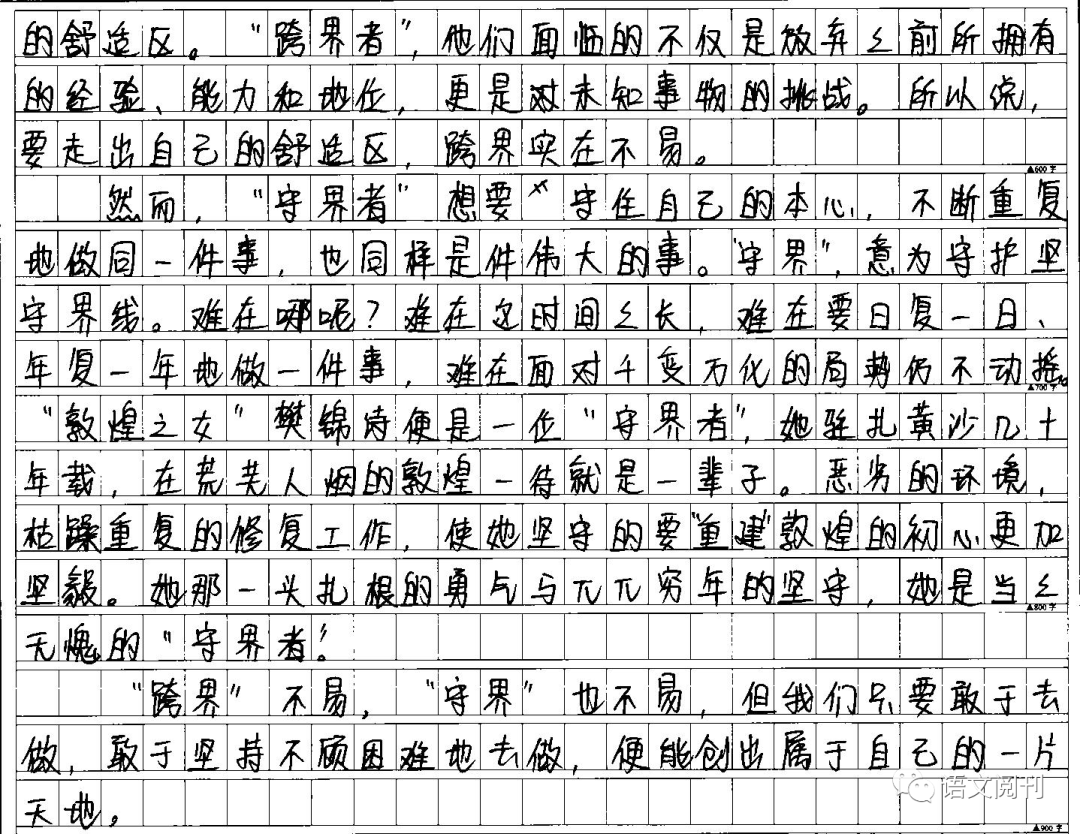 的舒适区。“跨界者”，他们面临的不仅是放弃之前所拥有
的经验、能力和地位，更是对未知事物的挑战。所以说，
要走出自己的舒适区，跨界实在不易。
▲600字
然而，“守界者”想要“守住自己的本心，不断重复
地做同一件事，也同样是件伟大的事。“守界”，意为守护坚
守界线。难在哪呢？难在这时间之长，难在要日复一日、
年复一年地做一件事，难在面对千变万化的局势仍不动摇。
▲700字
“敦煌之女”樊锦诗便是一位“守界者”，她驻扎黄沙几十
年载，在荒芜人烟的敦煌一待就是一辈子。恶劣的环境，
枯躁重复的修复工作，使她坚守的要“重建”敦煌的初心更加
坚毅。她那一头扎根的勇气与兀兀穷年的坚守，她是当之
▲800字
无愧的“守界者”！
“跨界”不易，“守界”也不易，但我们只要敢于去
做，敢于坚持不顾困难地去做，便能创出属于自己的一片
天地。
语文阅刊
▲900字